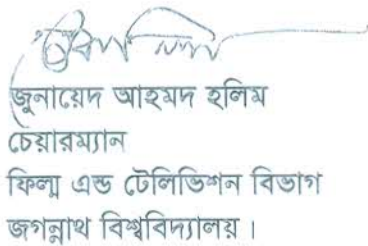 জুনায়েদ আহমদ হলিম
চেয়ারম্যান
ফিল্ম এন্ড টেলিভিশন বিভাগ
জগন্নাথ বিশ্ববিদ্যালয়।